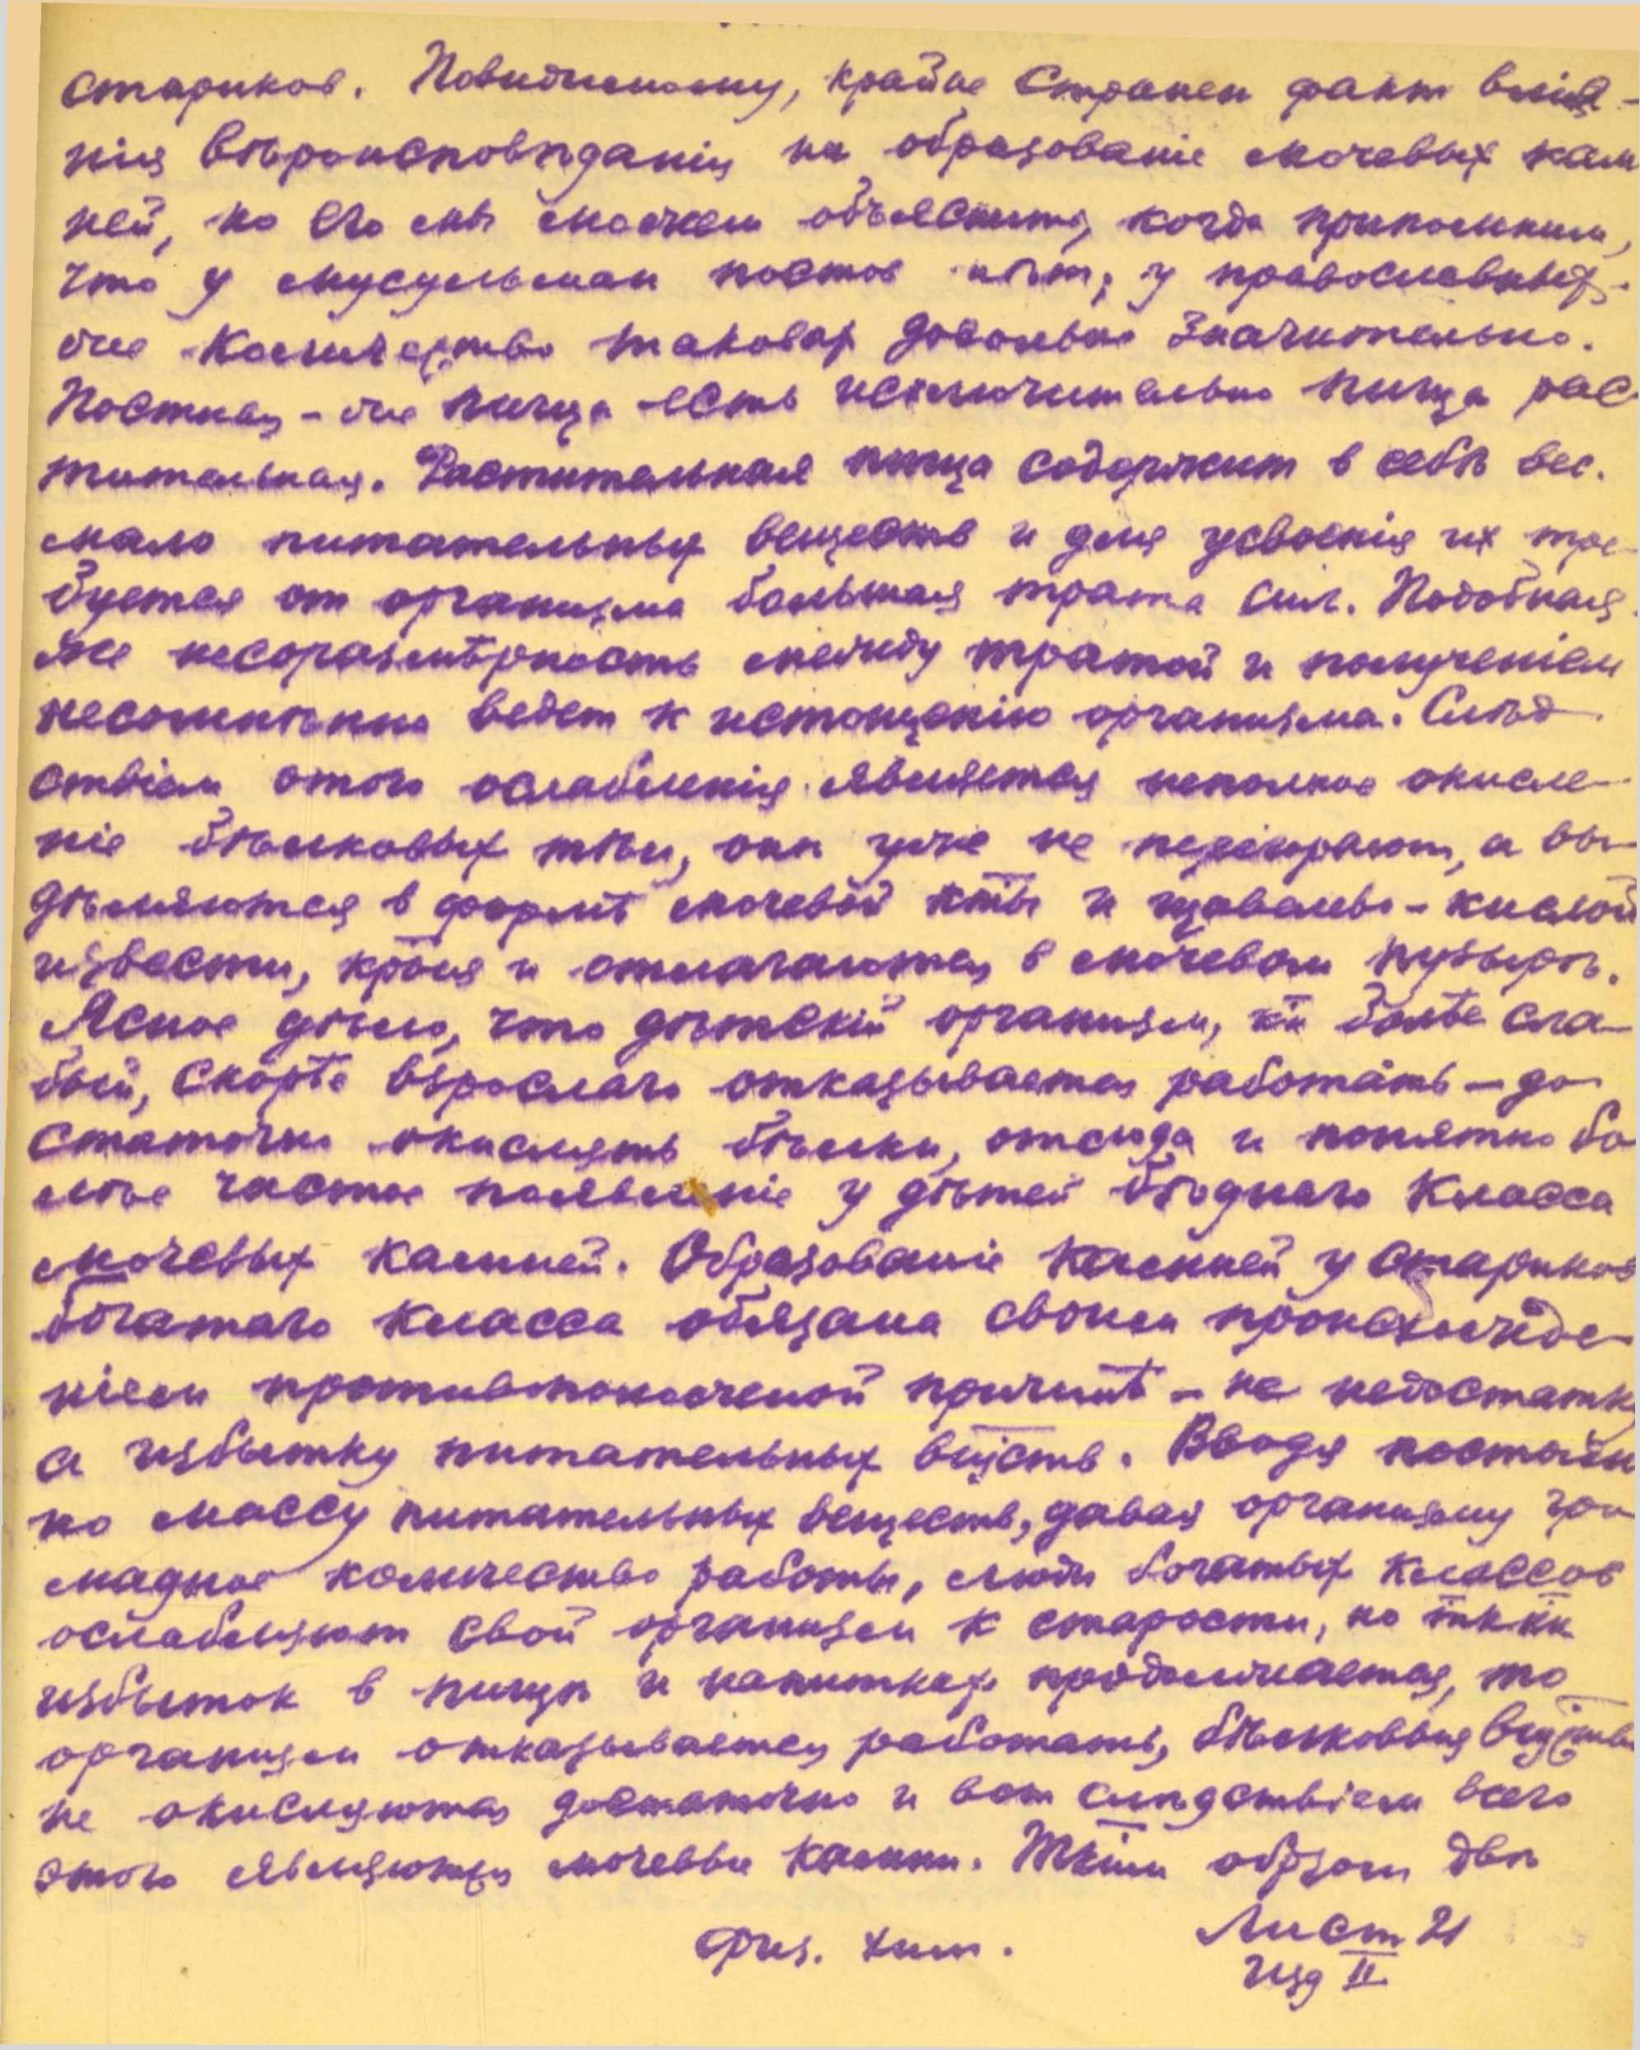 стариков. Повидимому, крайне странен факт влія-
нія вѣроисповѣданія на образованіе мочевых кам
ней, но его мы можем объяснить, когда припомним,
что у мусульман постов нѣт, у православных-
же количество таковых довольно значительно.
Постная-же пища есть исключительно пища рас-
тительная. Растительная пища содержит в себѣ вес.
мало питательных веществ и для усвоенія их тре-
буется от организма большая трата сил. Подобная
же несоразмѣрность между тратой и полученіем
несомнѣнно ведет к истощенію организма. Слѣд-
ствіем этого ослабленія является неполное окисле-
ніе бѣлковых тѣл, они уже не перегорают, а вы-
дѣляются в формѣ мочевой кты и щавелево-кислой
извести, кроия и отлагаются в мочевом пузырѣ.
Ясное дѣло, что дѣтскій организм, кк болѣе сла-
бый, скорѣе взрослаго отказывается работать – до-
статочно окислять бѣлки, отсюда и понятно бо
лѣе частое появленіе у дѣтей бѣднаго класса
мочевых камней. Образованіе камней у стариков
богатаго класса обязана своим происхожде-
ніем противоположеной причинѣ – не недостатку
а избытку питательных вществ. Вводя постоян
но массу питательных веществ, давая организму гро-
мадное количество работы, люди богатых классов
ослабляют свой организм к старости, но тк кк
избыток в пищѣ и напитках продолжается, то
организм отказывается работать, бѣлковыя вещства
не окисляются достаточно и вот слѣдствіем всего
этого являются мочевые камни. Ткім образом двѣ
Физ. хим. Лист 21
Изд II